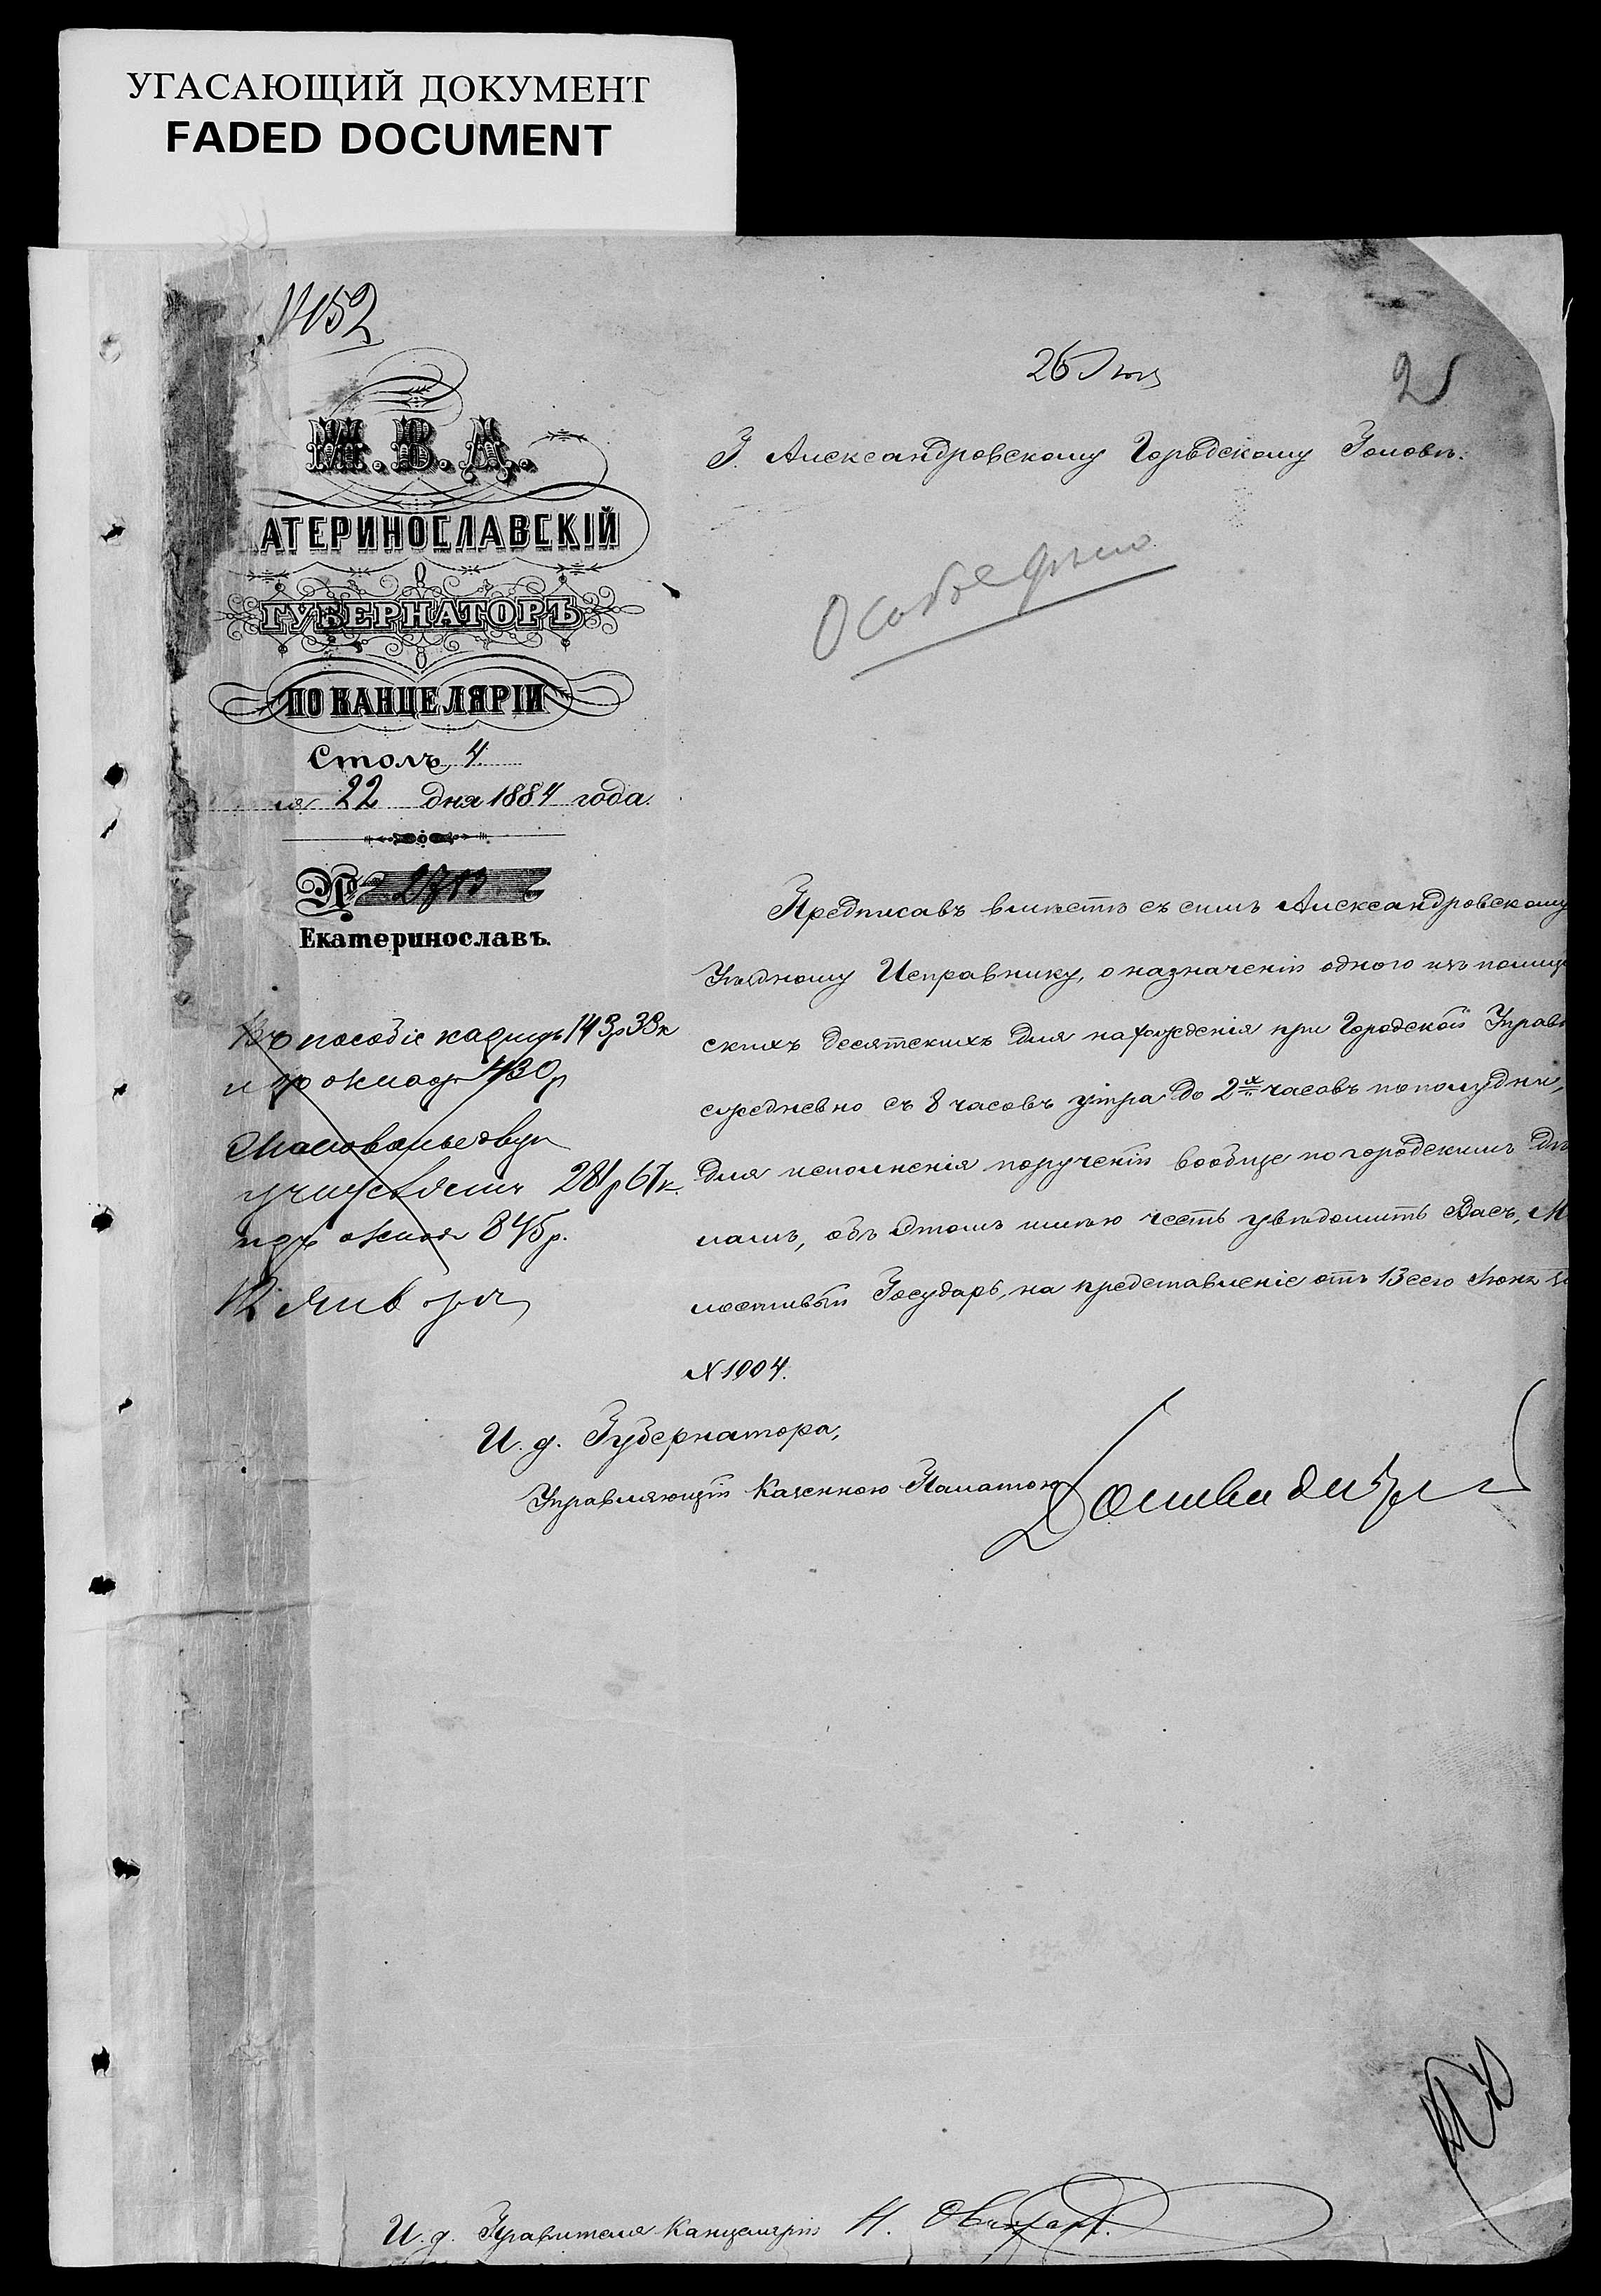 УГАСАЮЩИЙ ДОКУМЕНТ
FADED DOCUMENT
1152
М.В.Д.
АТЕРИНОСЛАВСКІЙ
ГУБЕРНАТОРЪ
ПО КАНЦЕЛЯРІИ
Столъ 4
ля 22 дня 1884 года.
№
Екатеринославъ.
26 Іюля
2
Г. Александровскому Городскому Головѣ.
Особое дѣло
Предписавъ вмѣстѣ съ симъ Александровскому
Уѣздному Исправнику, о назначеніи одного изъ полицей
скихъ десятскихъ для нахожденія при Городской Управѣ
ежедневно съ 8 часовъ утра до 2х часовъ пополудни,
для исполненія порученій вообще по городскимъ дѣ
ламъ, объ этомъ имѣю честь увѣдомить Васъ, М
лостивый Государь, на представленіе отъ 13 сего Іюня за
№ 1004.
Въ пособіе казнѣ 143р 38к
и 430р
281р 67к.
845р.
12 Января
И. д. Губернатора,
Управляющій Казенною Палатою
И. д. Правителя Канцеляріи Н.